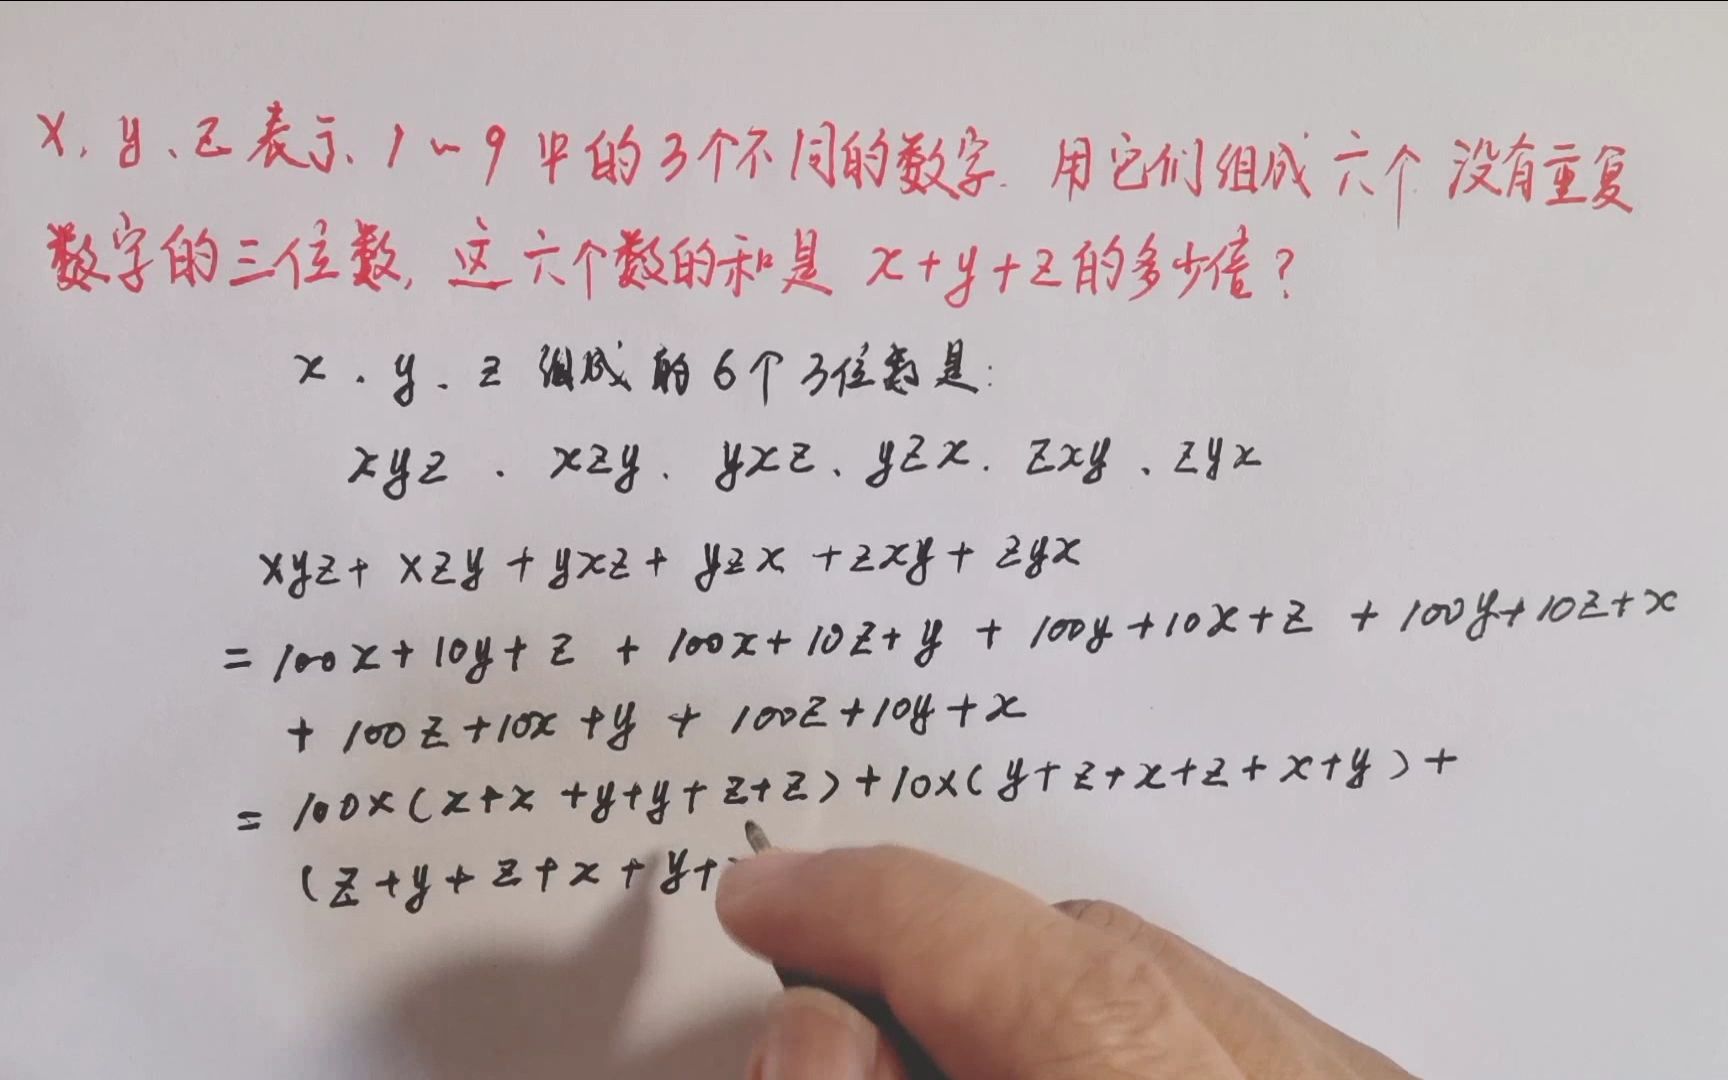 x、y、z表示、1~9中的3个不同的数字.用它们组成六个没有重复
数字的三位数,这六个数的和是 x+y+z的多少倍?
x、y、z组成的6个3位数是:
xyz、xzy、yxz、yzx、zxy、zyx
xyz+xzy+yxz+yzx+zxy+zyx
=100x+10y+z+100x+10z+y+100y+10x+z+100y+10z+x
+100z+10x+y+100z+10y+x
=100×(x+x+y+y+z+z)+10×(y+z+x+z+x+y)+
(z+y+z+x+y+